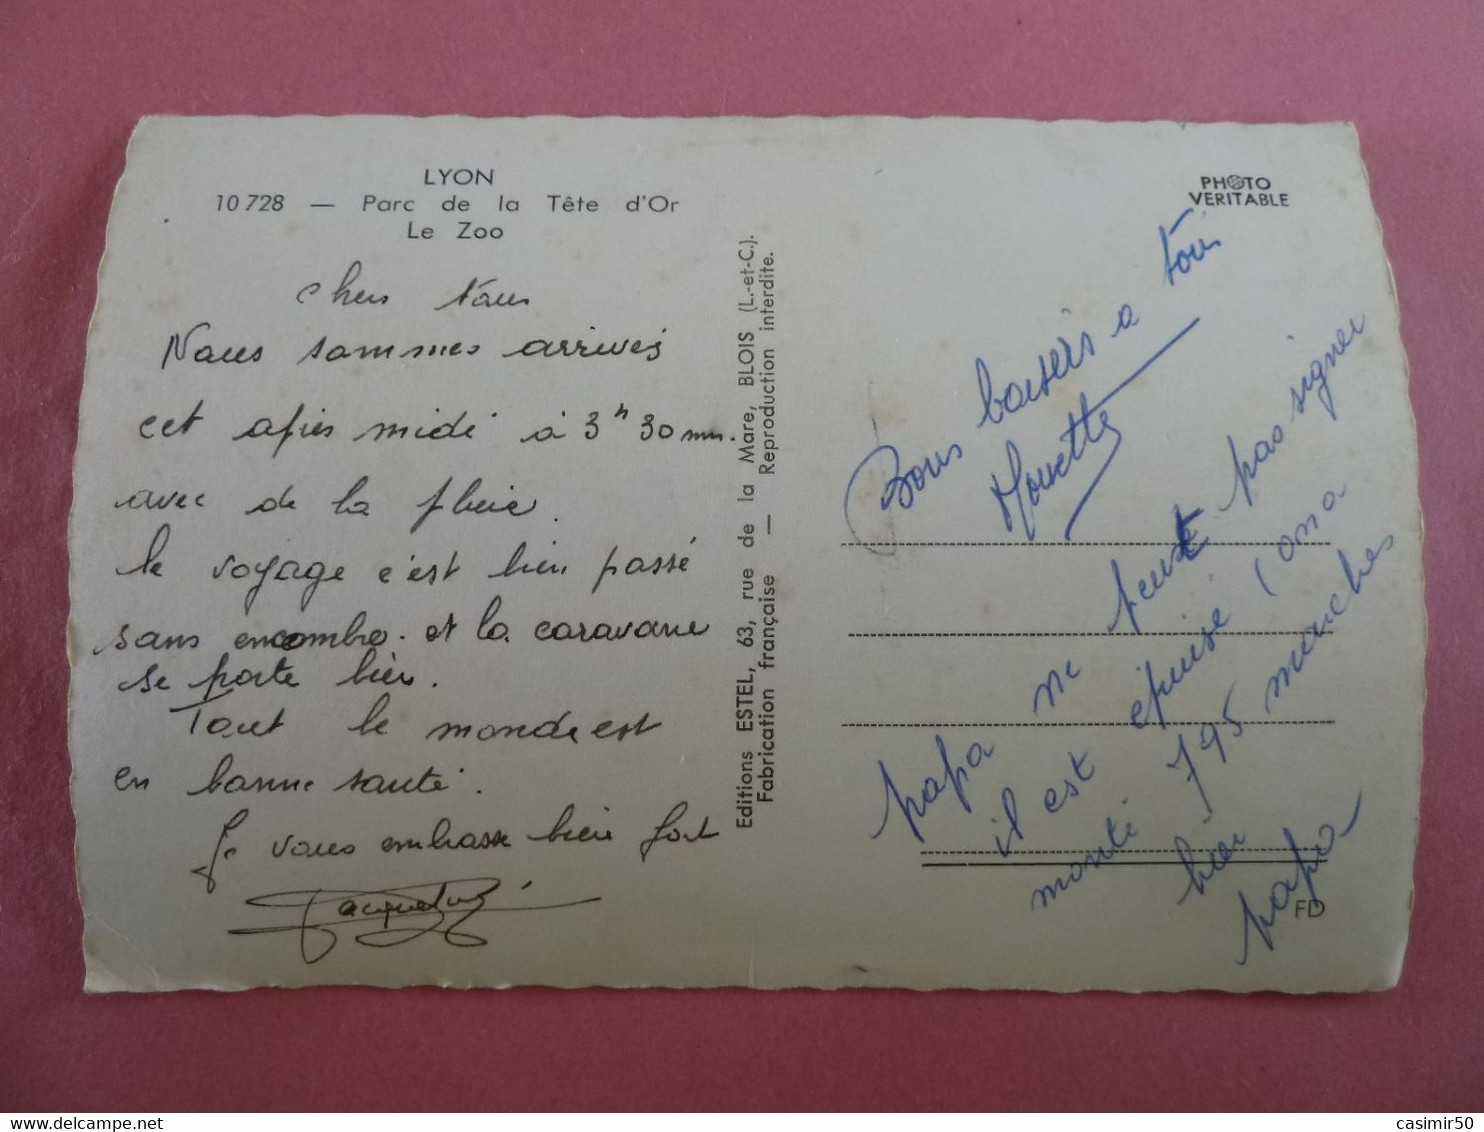 LYON
10 728 — Parc de la Tête d'Or
Le Zoo
chers tous
Nous sommes arrivés
cet après midi à 3h 30 mn.
avec de la pluie.
le voyage c'est bien passé
sans encombre. et la caravane
se porte bien.
Tout le monde est
en bonne santé.
Je vous embrasse bien fort
Editions ESTEL, 63, rue de la Mare, BLOIS (L.-et-C.).
Fabrication française — Reproduction interdite.
PHOTO
VERITABLE
Bons baisers a tous
papa ne peut pas signer
il est épuisé (on a
monté 795 marches
hier
papa
FD
casimir50